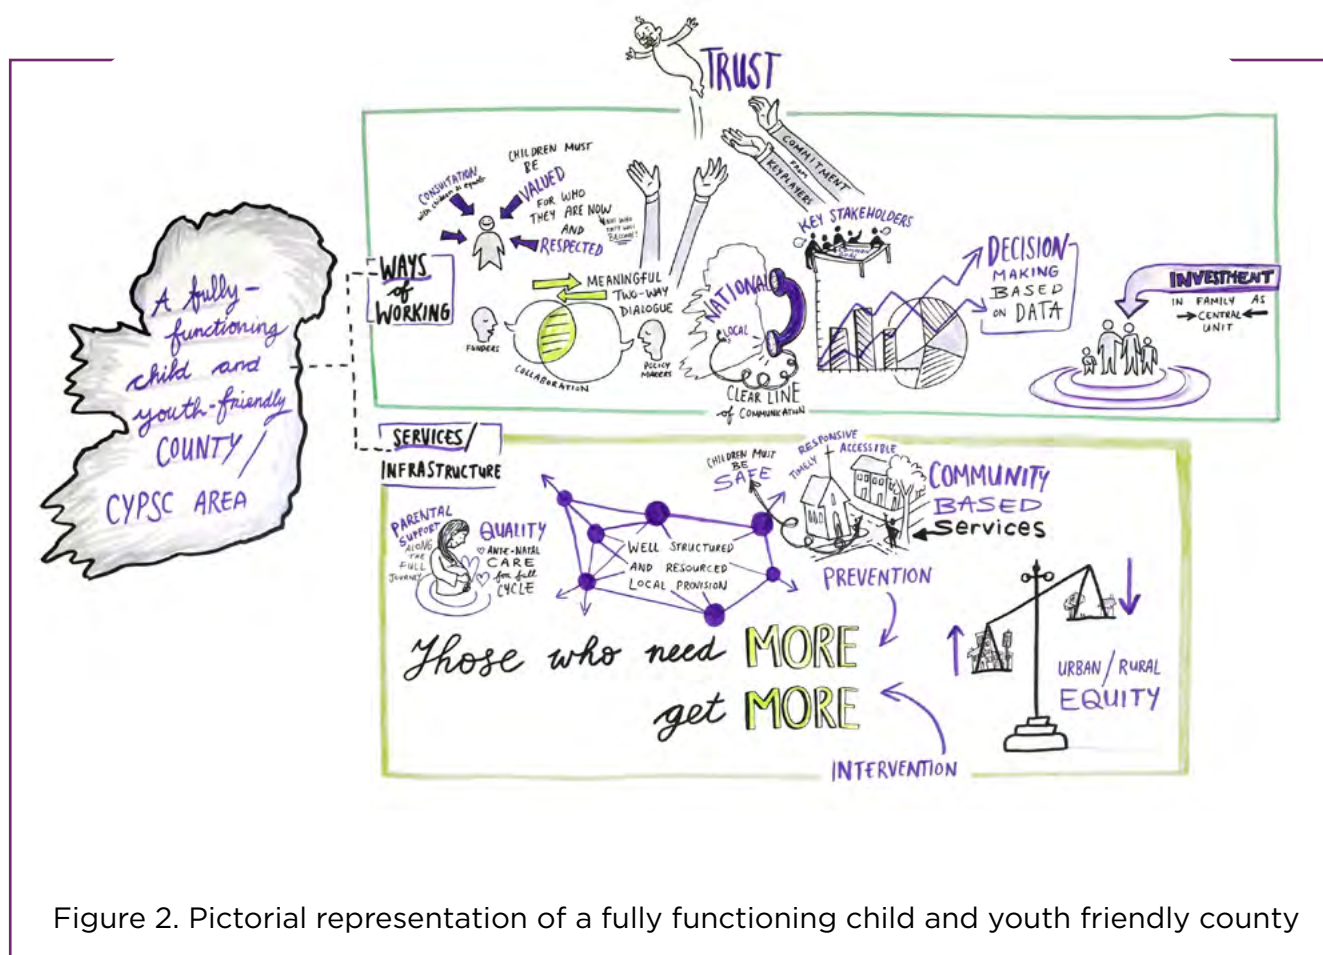 TRUST
A fully-
functioning
child and
youth-friendly
COUNTY/
CYPSC AREA
WAYS
of
WORKING
CONSULTATION
with children as equals
CHILDREN MUST
BE
VALUED
FOR WHO
THEY ARE NOW
NOT WHO
THEY WILL
BECOME!
AND
RESPECTED
MEANINGFUL
TWO-WAY
DIALOGUE
FUNDERS
COLLABORATION
POLICY
MAKERS
COMMITMENT
FROM
KEY PLAYERS
NATIONAL
LOCAL
CLEAR LINE
of COMMUNICATION
KEY STAKEHOLDERS
DECISION-
MAKING
BASED
ON DATA
INVESTMENT
IN FAMILY AS
CENTRAL
UNIT
SERVICES/
INFRASTRUCTURE
PARENTAL
SUPPORT
ALONG
THE
FULL
JOURNEY
QUALITY
ANTE-NATAL
CARE
for full
CYCLE
WELL STRUCTURED
AND RESOURCED
LOCAL PROVISION
CHILDREN MUST
BE
SAFE
TIMELY
RESPONSIVE
ACCESSIBLE
COMMUNITY
BASED
Services
PREVENTION
Those who need MORE
get MORE
INTERVENTION
URBAN/RURAL
EQUITY
Figure 2. Pictorial representation of a fully functioning child and youth friendly county